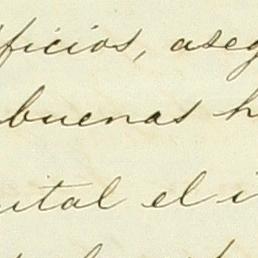 ficios, aseg
buenas h
ital el i